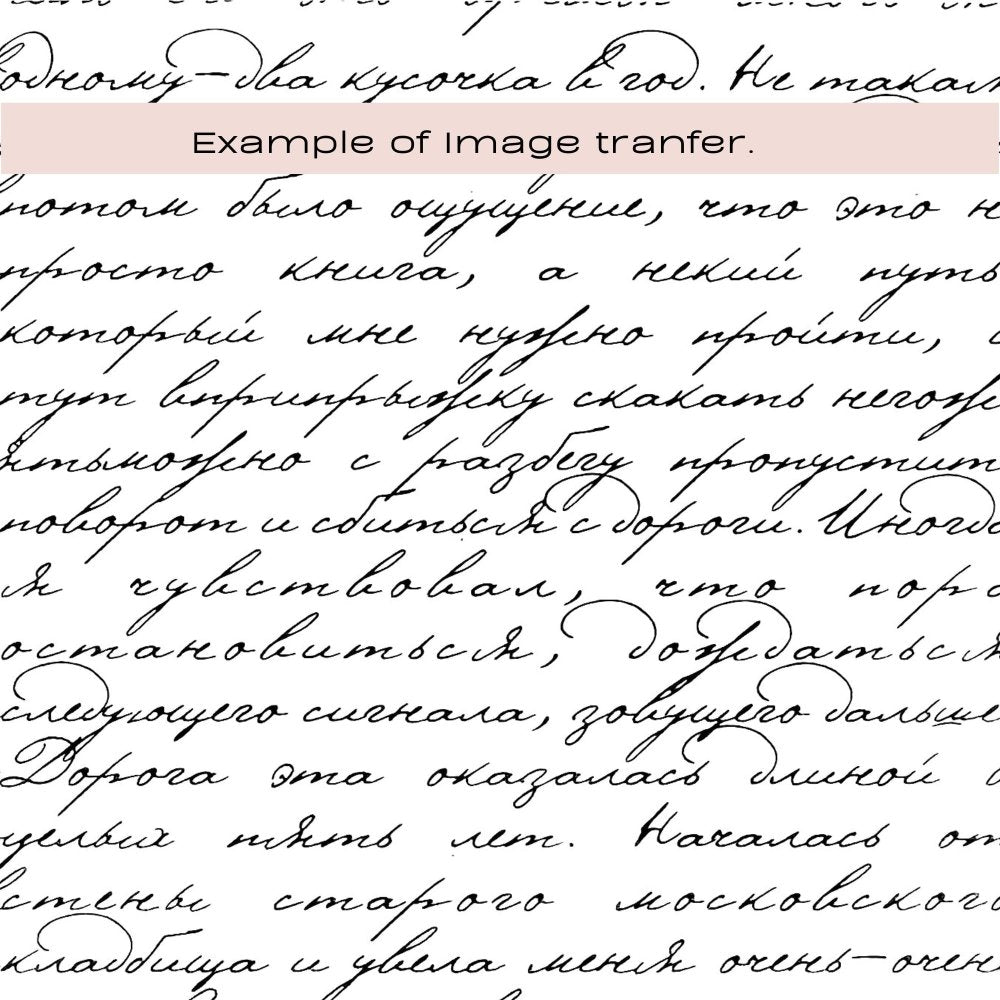 одному-два кусочка в год. Не такая
Example of Image tranfer.
потом было ощущение, что это н
просто книга, а некий путь
который мне нужно пройти,
тут вприпрыжку скакать негож
ятьможно с разбегу пропустит
поворот и сбиться с дороги. Иногда
я чувствовал, что пора
остановиться, дождаться
следующего сигнала, зовущего дальше
Дорога эта оказалась длиной
целых пять лет. Началась от
стены старого московского
кладбища и увела меня очень-очен